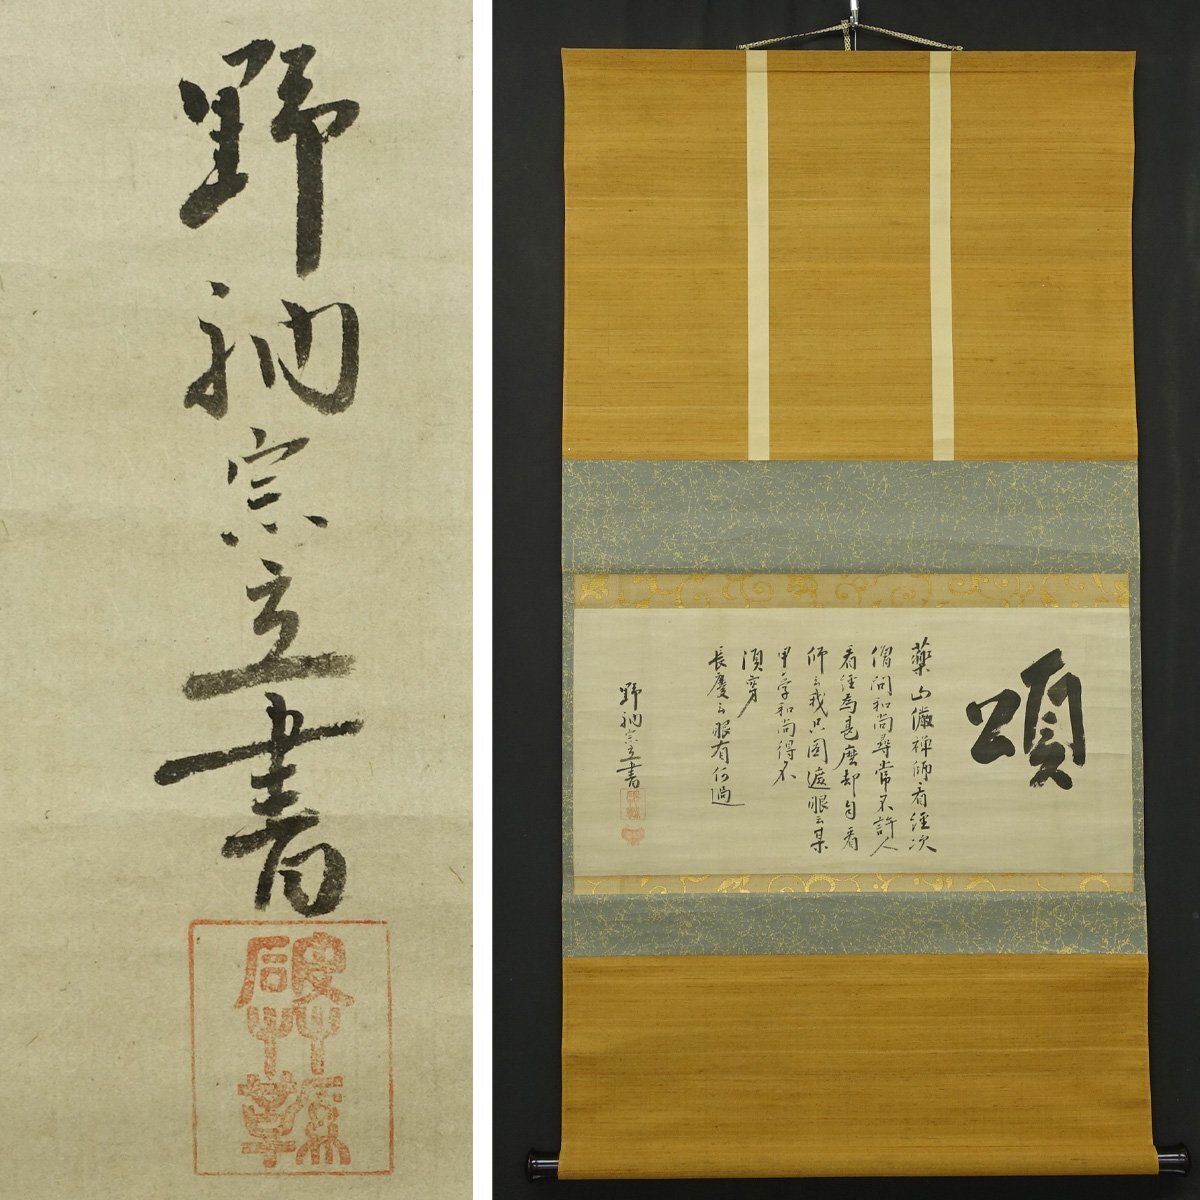 野衲宗立書
頌
藥山儼禅師看経次
僧問和尚尋常不許人
看経為甚麼却自看
師云我只図遮眼云某
甲学和尚得不
須穿
長慶云眼有何過
野衲宗立書